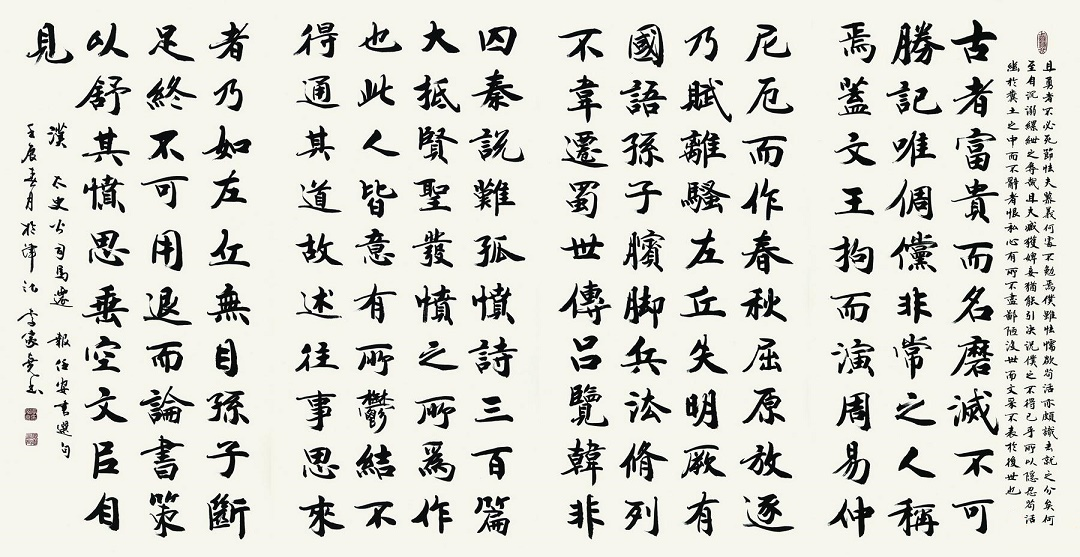 且勇者不必死節怯夫慕義何處不勉焉僕雖怯懦欲苟活亦頗識去就之分矣何
至自沉溺縲紲之辱哉且夫臧獲婢妾猶能引決況僕之不得已乎所以隱忍苟活
於糞土之中而不辭者恨私心有所不盡鄙陋沒世而文采不表於後世也
古者富貴而名磨滅不可
勝記唯倜儻非常之人稱
焉蓋文王拘而演周易仲
尼厄而作春秋屈原放逐
乃賦離騷左丘失明厥有
國語孫子臏脚兵法脩列
不韋遷蜀世傳呂覽韓非
囚秦說難孤憤詩三百篇
大抵賢聖發憤之所爲作
也此人皆意有所鬱結不
得通其道故述往事思來
者乃如左丘無目孫子斷
足終不可用退而論書策
以舒其憤思垂空文以自
見
漢 太史公司馬遷 報任安書選句
壬辰春月於津沽 李家